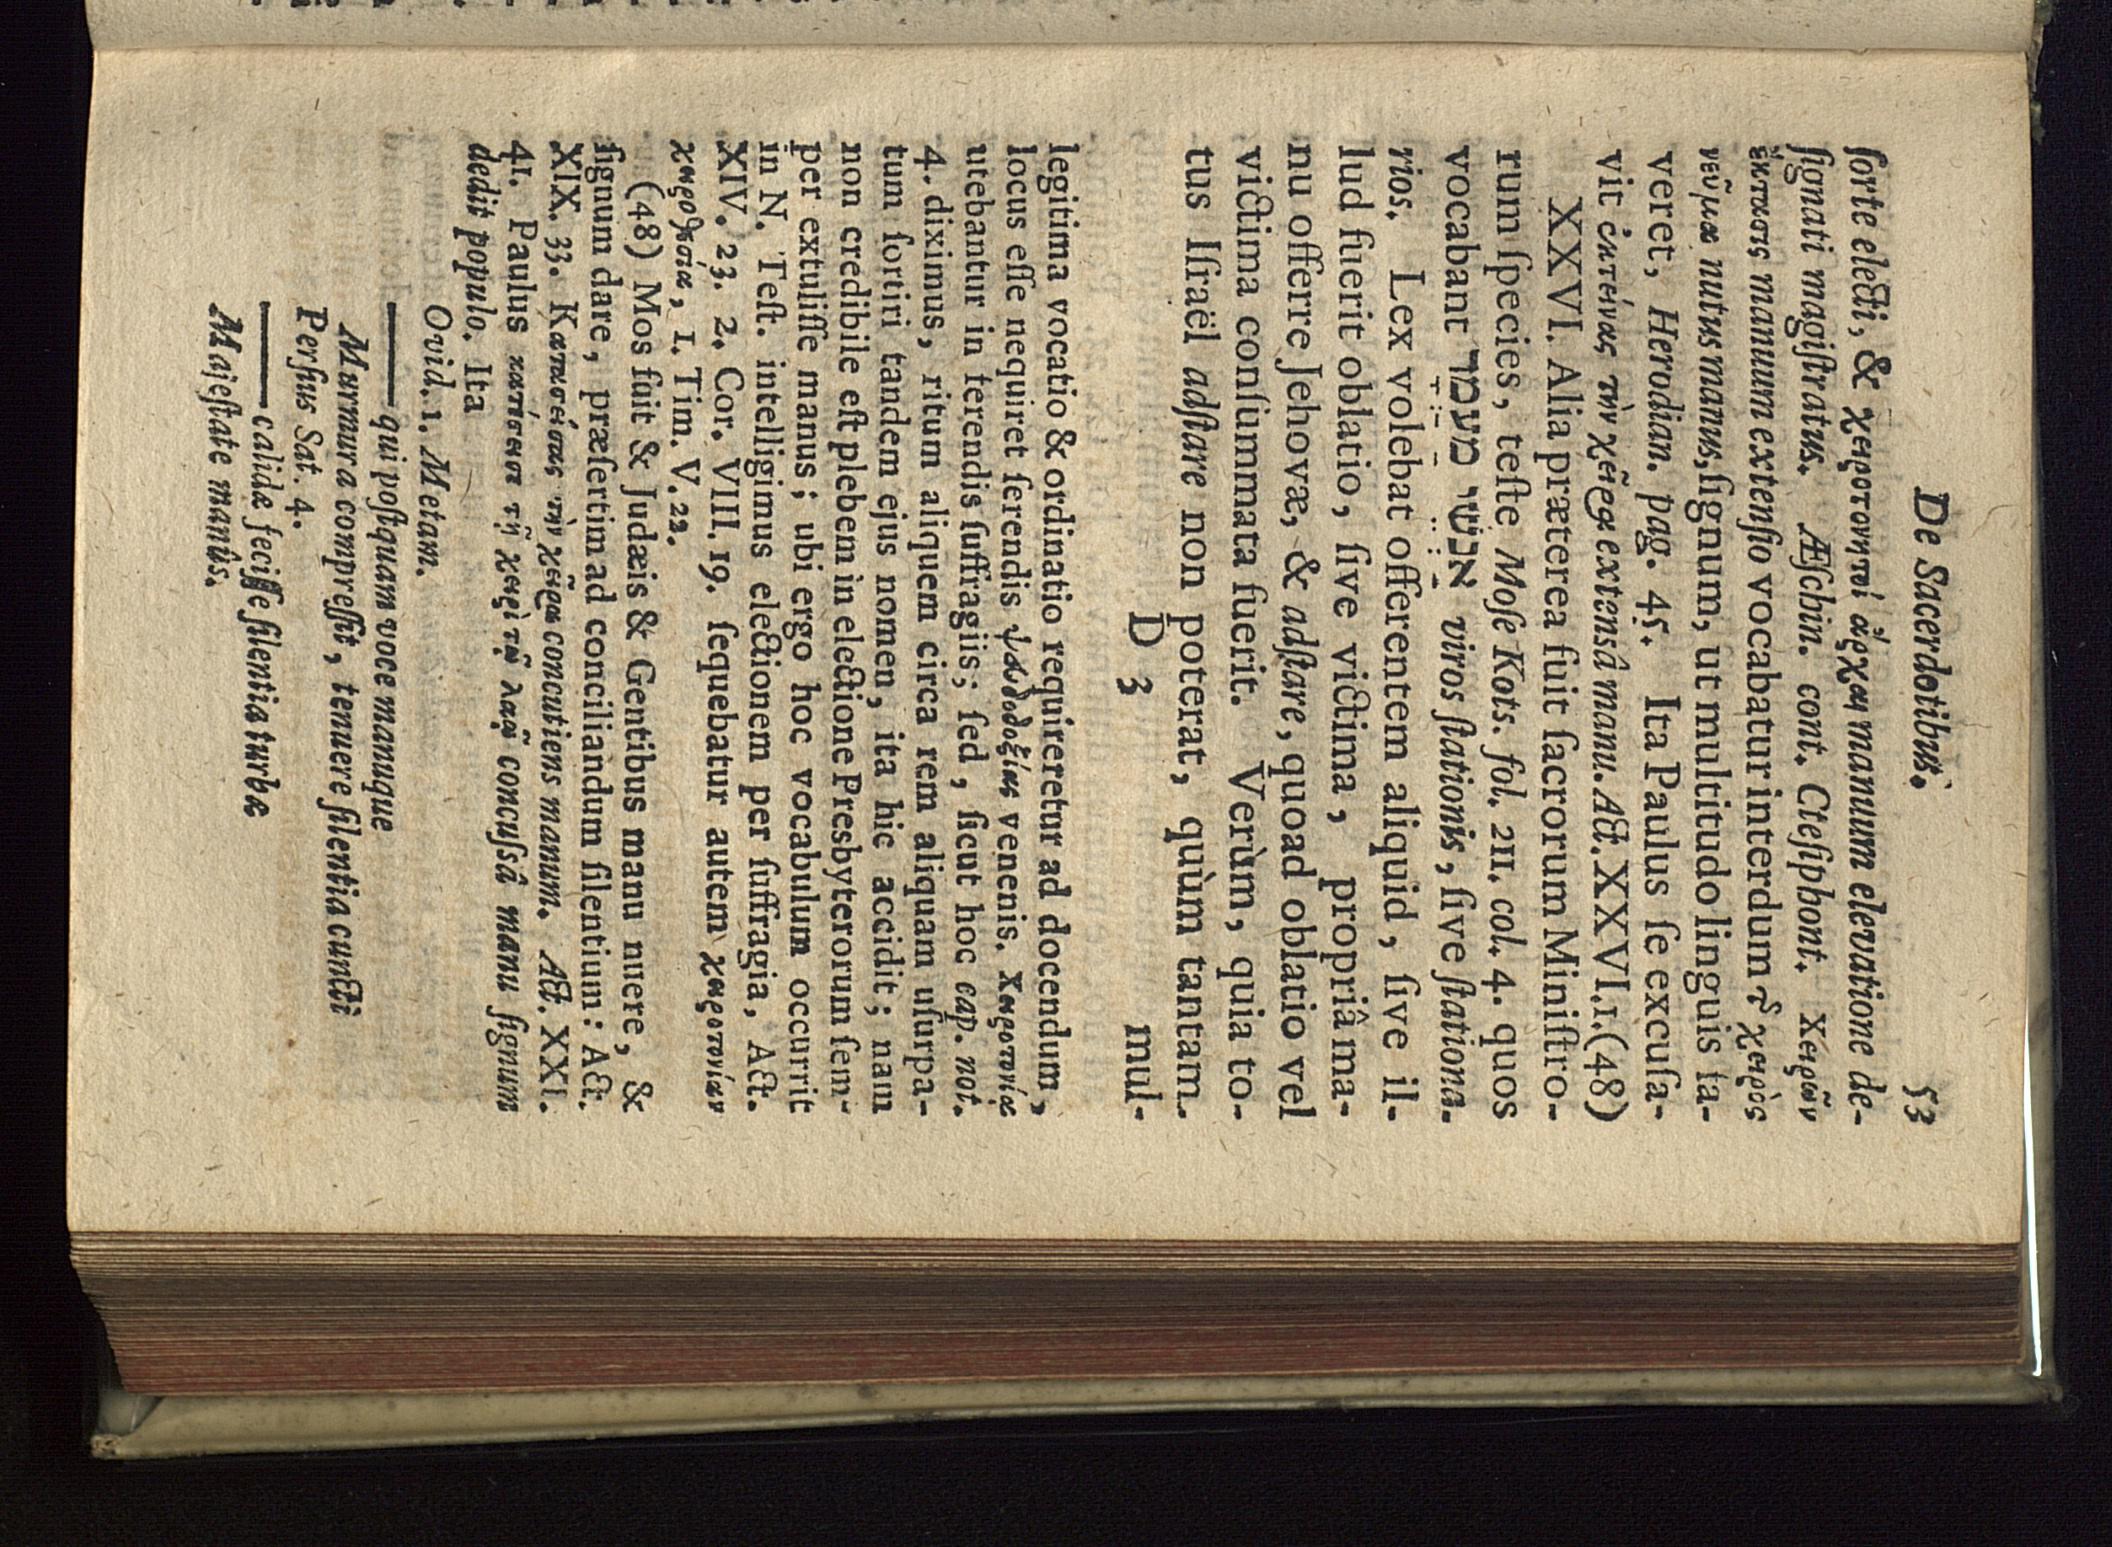 De Sacerdotibus. 53
ſorte electi, & χειροτονητοὶ ἄρχαι manuum elevatione de-
ſignati magiſtratus. Æſchin. cont. Cteſiphont. Χειρῶν
ἔκτασις manuum extenſio vocabatur interdum τ͂ χειρὸς
νεῦμα nutus manus, ſignum, ut multitudo linguis fa-
veret, Herodian. pag. 45. Ita Paulus ſe excuſa-
vit ἐκτείνας τὴν χεῖρα extensâ manu. Act. XXVI. 1. (48)
XXVI. Alia præterea fuit ſacrorum Miniſtro-
rum ſpecies, teſte Moſe Kots. fol. 211. col. 4. quos
vocabant אנשי מעמד viros ſtationis, ſive ſtationa-
rios. Lex volebat offerentem aliquid, ſive il-
lud fuerit oblatio, ſive victima, propriâ ma-
nu offerre Jehovæ, & adſtare, quoad oblatio vel
victima conſummata fuerit. Verùm, quia to-
tus Iſraël adſtare non poterat, quùm tantam
D 3 mul-
legitima vocatio & ordinatio requireretur ad docendum,
locus eſſe nequiret ferendis ψευδοδοξίας venenis. Χειροτονίᾳ
utebantur in ferendis ſuffragiis; ſed, ſicut hoc cap. not.
4. diximus, ritum aliquem circa rem aliquam uſurpa-
tum ſortiri tandem ejus nomen, ita hic accidit; nam
non credibile eſt plebem in electione Presbyterorum ſem-
per extuliſſe manus; ubi ergo hoc vocabulum occurrit
in N. Teſt. intelligimus electionem per ſuffragia, Act.
XIV. 23. 2. Cor. VIII. 19. ſequebatur autem χειροτονίαν
χειροθεσία, 1. Tim. V. 22.
(48) Mos fuit & Judæis & Gentibus manu nuere, &
ſignum dare, præſertim ad conciliandum ſilentium: Act.
XIX. 33. Κατασείσας τὴν χεῖρα concutiens manum. Act. XXI.
41. Paulus κατέσεισε τῇ χειρὶ τῷ λαῷ concuſsâ manu ſignum
dedit populo. Ita
Ovid. 1. Metam.
—— qui poſtquam voce manuque
Murmura compreſſit, tenuere ſilentia cuncti
Perſius Sat. 4.
—— calidæ feciſſe ſilentia turbæ
Majeſtate manûs.